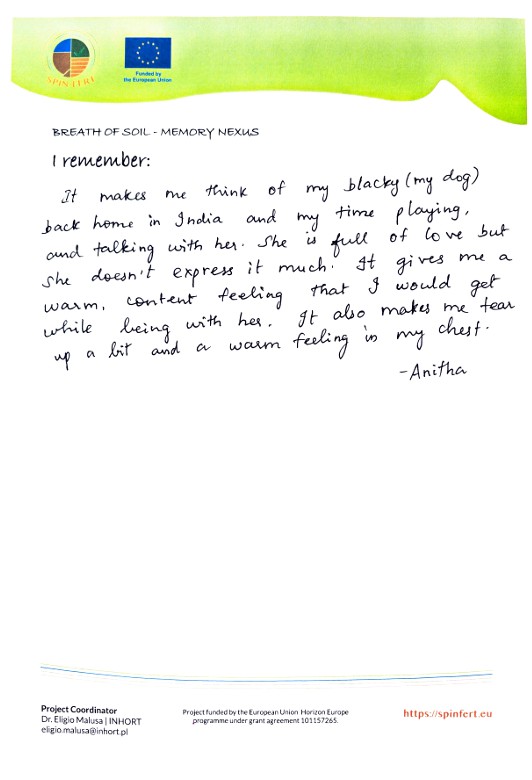 SPINFERT
Funded by
the European Union
BREATH OF SOIL - MEMORY NEXUS
I remember:
It makes me think of my blacky (my dog)
back home in India and my time playing,
and talking with her. She is full of love but
she doesn't express it much. It gives me a
warm, content feeling that I would get
while being with her. It also makes me tear
up a bit and a warm feeling in my chest.
-Anitha
Project Coordinator
Dr. Eligio Malusa | INHORT
eligio.malusa@inhort.pl
Project funded by the European Union Horizon Europe
programme under grant agreement 101157265.
https://spinfert.eu